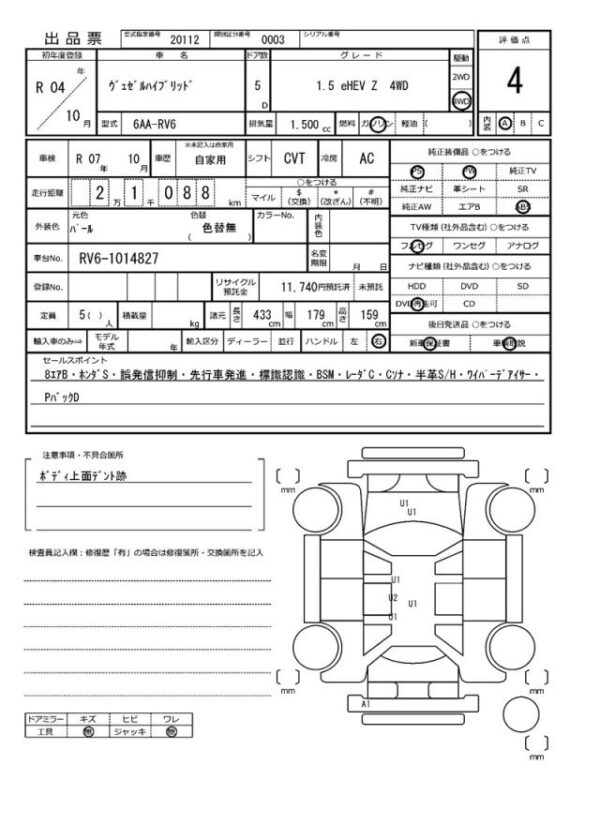 出品票 型式指定番号 20112 類別区分番号 0003 シリアル番号
評価点
初年度登録 車名 ドア数 グレード 駆動
R 04 年 ヴェゼルハイブリッド 5 D 1.5 eHEV Z 4WD 2WD 4WD
4
10 月 型式 6AA-RV6 排気量 1,500 cc 燃料 ガソリン 軽油 ( ) 内装 A B C
車検 R 07 年 10 月 車歴 ※未記入は自家用 自家用 シフト CVT 冷房 AC
純正装備品 ○をつける
PS PW 純正TV
純正ナビ 革シート SR
純正AW エアB ABS
走行距離 2 万 1 千 0 8 8 km ○をつける マイル $ (交換) * (改ざん) # (不明)
外装色 元色 パール 色替 ( 色替無 ) カラーNo. 内装色
TV種類 (社外品含む) ○をつける
フルセグ ワンセグ アナログ
車台No. RV6-1014827 名変期限 月 日
ナビ種類 (社外品含む) ○をつける
登録No. リサイクル預託金 11,740円預託済 未預託
HDD DVD SD
DVD再生可 CD
定員 5 ( ) 人 積載量 kg 諸元 長さ 433 cm 幅 179 cm 高さ 159 cm
後日発送品 ○をつける
輸入車のみ⇒ モデル年式 年 輸入区分 ディーラー 並行 ハンドル 左 右
新車保証書 車輌取説
セールスポイント
8エアB・ホンダS・誤発信抑制・先行車発進・標識認識・BSM・レーダC・Cソナ・半革S/H・ワイパーデアイサー・
PバックD
注意事項・不具合箇所
ボディ上面デント跡
検査員記入欄：修復歴「有」の場合は修復箇所・交換箇所を記入
mm
mm
U1
U1
U1
U2
U1
U1
mm
mm
A1
mm
ドアミラー キズ ヒビ ワレ
工具 無 ジャッキ 無